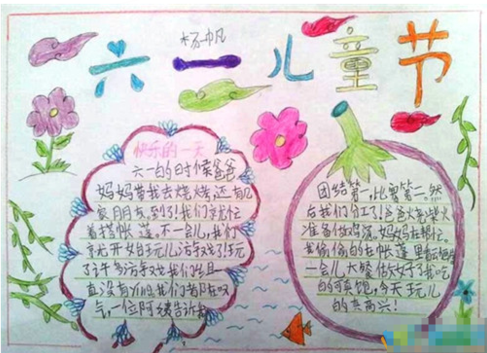 杨帆
六一儿童节
快乐的一天
六一的时候爸爸
妈妈带我去烧烤还有几
家朋友,到了!我们就忙
着搭帐篷,不一会儿,我们
就开始玩儿游戏了玩
了许多游戏我们坐且
直没有们我们都在叹
气,一位阿姨告诉
团结第一,比赛第二。然
后我们分工了!爸爸义柴火
准备做鸡汤,妈妈在帮忙。
我偷偷的在帐篷里看
一会儿大餐做好了我吃
的可真饱,今天玩儿
的真高兴!